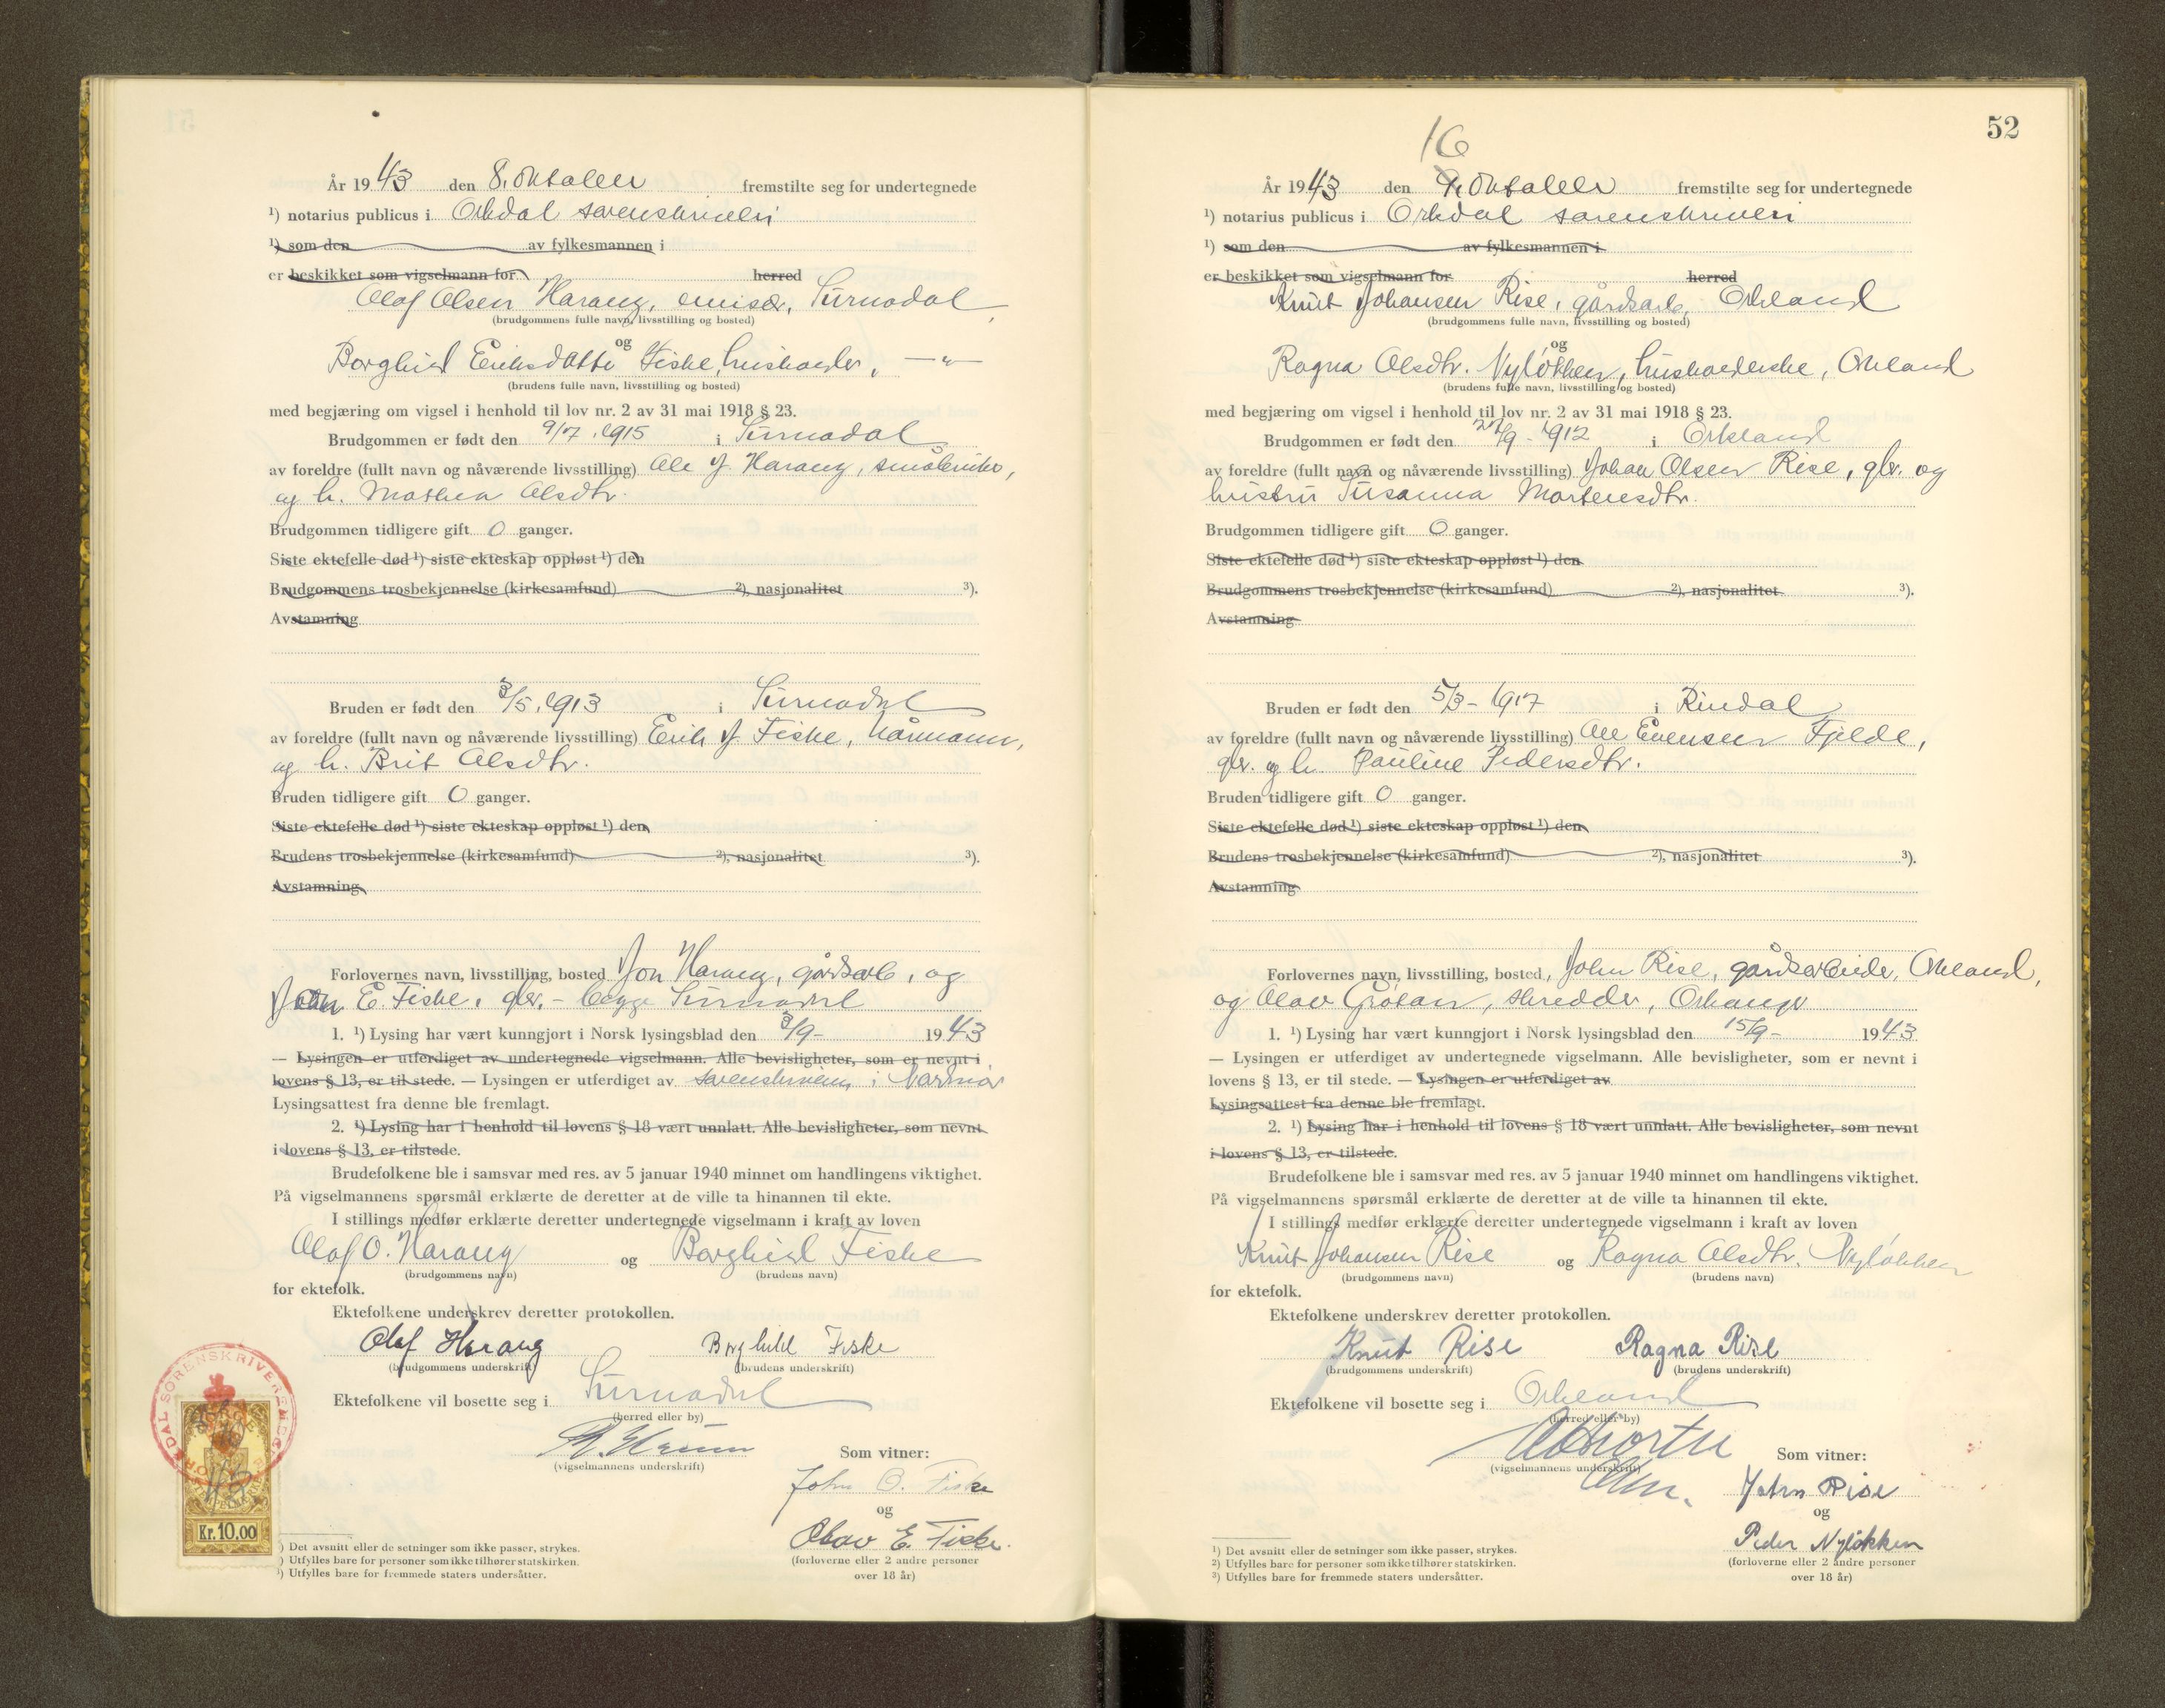 År 1943 den 8. oktober fremstilte seg for undertegnede
¹) notarius publicus i Orkdal sorenskriveri
¹) som den av fylkesmannen i
er beskikket som vigselmann for herred
Olaf Olsen Harang, emisær, Surnadal,
(brudgommens fulle navn, livsstilling og bosted)
og
Borghild Eriksdatter Fiske, husholder, —"—
(brudens fulle navn, livsstilling og bosted)
med begjæring om vigsel i henhold til lov nr. 2 av 31 mai 1918 § 23.
Brudgommen er født den 9/7. 1915 i Surnadal
av foreldre (fullt navn og nåværende livsstilling) Ole J. Harang, småbruker,
og h. Mathea Olsdtr.
Brudgommen tidligere gift 0 ganger.
Siste ektefelle død ¹) siste ekteskap oppløst ¹) den
Brudgommens trosbekjennelse (kirkesamfund) ²), nasjonalitet ³).
Avstamning
Bruden er født den 3/5. 1913 i Surnadal
av foreldre (fullt navn og nåværende livsstilling) Erik J. Fiske, kårmann,
og h. Brit Olsdtr.
Bruden tidligere gift 0 ganger.
Siste ektefelle død ¹) siste ekteskap oppløst ¹) den
Brudens trosbekjennelse (kirkesamfund) ²), nasjonalitet ³).
Avstamning
Forlovernes navn, livsstilling, bosted Jon Harang, gårdsarb, og
John E. Fiske, gbr. - begge Surnadal
1. ¹) Lysing har vært kunngjort i Norsk lysingsblad den 3/9- 1943
— Lysingen er utferdiget av undertegnede vigselmann. Alle bevisligheter, som er nevnt i
lovens § 13, er til stede. — Lysingen er utferdiget av sorenskriveren i Nordmør
Lysingsattest fra denne ble fremlagt.
2. ¹) Lysing har i henhold til lovens § 18 vært unnlatt. Alle bevisligheter, som nevnt
i lovens § 13, er tilstede.
Brudefolkene ble i samsvar med res. av 5 januar 1940 minnet om handlingens viktighet.
På vigselmannens spørsmål erklærte de deretter at de ville ta hinannen til ekte.
I stillings medfør erklærte deretter undertegnede vigselmann i kraft av loven
Olaf O. Harang og Borghild Fiske
(brudgommens navn) (brudens navn)
for ektefolk.
Ektefolkene underskrev deretter protokollen.
Olaf Harang Borghild Fiske
(brudgommens underskrift) (brudens underskrift)
Ektefolkene vil bosette seg i Surnadal
(herred eller by)
(vigselmannens underskrift)
Som vitner:
John O. Fiske
og
Olav E. Fiske.
(forloverne eller 2 andre personer
over 18 år)
ORKDAL SORENSKRIVEREMBEDE
Kr. 10,00
¹) Det avsnitt eller de setninger som ikke passer, strykes.
²) Utfylles bare for personer som ikke tilhører statskirken.
³) Utfylles bare for fremmede staters undersåtter.
52
16
År 1943 den 9. oktober fremstilte seg for undertegnede
¹) notarius publicus i Orkdal sorenskriveri
¹) som den av fylkesmannen i
er beskikket som vigselmann for herred
Knut Johansen Rise, gårdsarb, Orkland
(brudgommens fulle navn, livsstilling og bosted)
og
Ragna Olsdtr. Nyløkken, husholderske, Orkland
(brudens fulle navn, livsstilling og bosted)
med begjæring om vigsel i henhold til lov nr. 2 av 31 mai 1918 § 23.
Brudgommen er født den /9 - 1912 i Orkland
av foreldre (fullt navn og nåværende livsstilling) Johan Olsen Rise, gbr. og
hustru Susanna Mortensdtr.
Brudgommen tidligere gift 0 ganger.
Siste ektefelle død ¹) siste ekteskap oppløst ¹) den
Brudgommens trosbekjennelse (kirkesamfund) ²), nasjonalitet ³).
Avstamning
Bruden er født den 5/3 - 1917 i Rindal
av foreldre (fullt navn og nåværende livsstilling) Ole Evensen Fjelde,
gbr. og h. Pauline Pedersdtr.
Bruden tidligere gift 0 ganger.
Siste ektefelle død ¹) siste ekteskap oppløst ¹) den
Brudens trosbekjennelse (kirkesamfund) ²), nasjonalitet ³).
Avstamning
Forlovernes navn, livsstilling, bosted, John Rise, gårdsarbeider, Orkland,
og Olav Grötan, skredder, Orkanger
1. ¹) Lysing har vært kunngjort i Norsk lysingsblad den 15/9- 1943
— Lysingen er utferdiget av undertegnede vigselmann. Alle bevisligheter, som er nevnt i
lovens § 13, er til stede. — Lysingen er utferdiget av
Lysingsattest fra denne ble fremlagt.
2. ¹) Lysing har i henhold til lovens § 18 vært unnlatt. Alle bevisligheter, som nevnt
i lovens § 13, er tilstede.
Brudefolkene ble i samsvar med res. av 5 januar 1940 minnet om handlingens viktighet.
På vigselmannens spørsmål erklærte de deretter at de ville ta hinannen til ekte.
I stillings medfør erklærte deretter undertegnede vigselmann i kraft av loven
Knut Johansen Rise og Ragna Olsdtr. Nyløkken
(brudgommens navn) (brudens navn)
for ektefolk.
Ektefolkene underskrev deretter protokollen.
Knut Rise Ragna Rise
(brudgommens underskrift) (brudens underskrift)
Ektefolkene vil bosette seg i Orkland
(herred eller by)
(vigselmannens underskrift)
Som vitner:
John Rise
og
Peder Nyløkken
(forloverne eller 2 andre personer
over 18 år)
¹) Det avsnitt eller de setninger som ikke passer, strykes.
²) Utfylles bare for personer som ikke tilhører statskirken.
³) Utfylles bare for fremmede staters undersåtter.